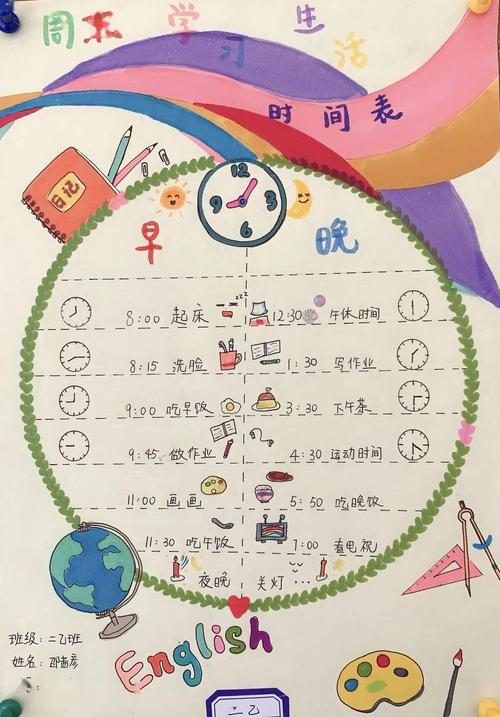 周末学习生活
时间表
日记
12
9 3
6
早 晚
8:00 起床 zzz 12:30 午休时间
8:15 洗脸 1:30 写作业
9:00 吃早饭 3:30 下午茶
9:45 做作业 4:30 运动时间
11:00 画画 5:50 吃晚饭
11:30 吃午饭 7:00 看电视
夜晚 关灯...
班级:二乙班
姓名:邵
English
二乙